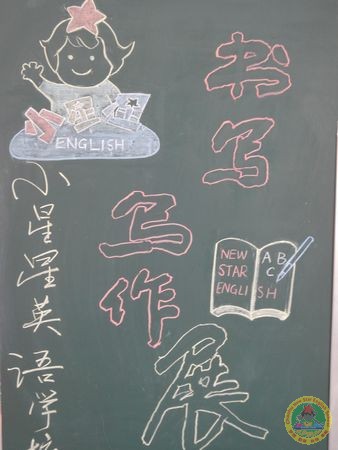 小星星
ENGLISH
小星星英语学校
书写
写作
展
NEW
STAR
ENGLISH
A B
C